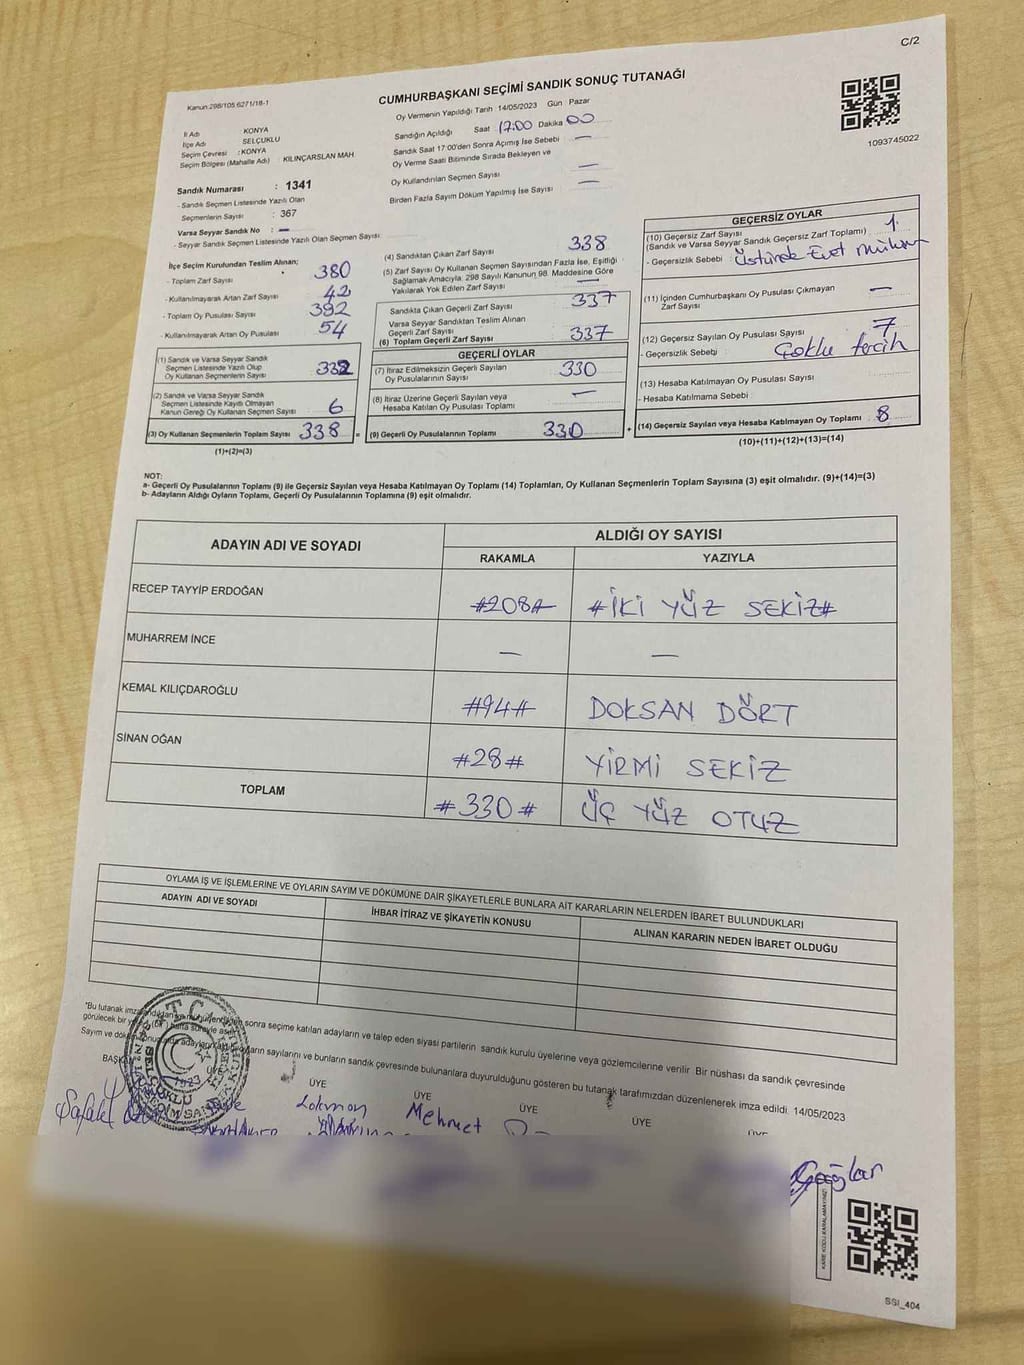 C/2
Kanun:298/105;6271/18-1
CUMHURBAŞKANI SEÇİMİ SANDIK SONUÇ TUTANAĞI
Oy Vermenin Yapıldığı Tarih 14/05/2023 Gün Pazar
İl Adı : KONYA
İlçe Adı SELÇUKLU
Seçim Çevresi : KONYA
Seçim Bölgesi (Mahalle Adı) KILINÇARSLAN MAH
Sandık Numarası : 1341
- Sandık Seçmen Listesinde Yazılı Olan
Seçmenlerin Sayısı : 367
Varsa Seyyar Sandık No : –
- Seyyar Sandık Seçmen Listesinde Yazılı Olan Seçmen Sayısı:
Sandığın Açıldığı Saat 17:00 Dakika 00
Sandık Saat 17:00'den Sonra Açımış İse Sebebi —
Oy Verme Saati Bitiminde Sırada Bekleyen ve
Oy Kullandırılan Seçmen Sayısı —
Birden Fazla Sayım Döküm Yapılmış İse Sayısı —
1093745022
İlçe Seçim Kurulundan Teslim Alınan;
- Toplam Zarf Sayısı 380
- Kullanılmayarak Artan Zarf Sayısı 42
- Toplam Oy Pusulası Sayısı 392
- Kullanılmayarak Artan Oy Pusulası 54
(1) Sandık ve Varsa Seyyar Sandık
Seçmen Listesinde Yazılı Olup
Oy Kullanan Seçmenlerin Sayısı 332
(2) Sandık ve Varsa Seyyar Sandık
Seçmen Listesinde Kayıtlı Olmayan
Kanun Gereği Oy Kullanan Seçmen Sayısı 6
(3) Oy Kullanan Seçmenlerin Toplam Sayısı 338 =
(1)+(2)=(3)
(4) Sandıktan Çıkan Zarf Sayısı 338
(5) Zarf Sayısı Oy Kullanan Seçmen Sayısından Fazla İse, Eşitliği
Sağlamak Amacıyla; 298 Sayılı Kanunun 98. Maddesine Göre
Yakılarak Yok Edilen Zarf Sayısı —
Sandıkta Çıkan Geçerli Zarf Sayısı 337
Varsa Seyyar Sandıktan Teslim Alınan
Geçerli Zarf Sayısı
(6) Toplam Geçerli Zarf Sayısı 337
GEÇERLİ OYLAR
(7) İtiraz Edilmeksizin Geçerli Sayılan
Oy Pusulalarının Sayısı 330
(8) İtiraz Üzerine Geçerli Sayılan veya
Hesaba Katılan Oy Pusulası Toplamı —
(9) Geçerli Oy Pusulalarının Toplamı 330 +
GEÇERSİZ OYLAR
(10) Geçersiz Zarf Sayısı
(Sandık ve Varsa Seyyar Sandık Geçersiz Zarf Toplamı) 1
- Geçersizlik Sebebi : Üstünde Evet
(11) İçinden Cumhurbaşkanı Oy Pusulası Çıkmayan
Zarf Sayısı —
(12) Geçersiz Sayılan Oy Pusulası Sayısı 7
- Geçersizlik Sebebi : Çoklu tercih
(13) Hesaba Katılmayan Oy Pusulası Sayısı
- Hesaba Katılmama Sebebi
(14) Geçersiz Sayılan veya Hesaba Katılmayan Oy Toplamı 8
(10)+(11)+(12)+(13)=(14)
NOT:
a- Geçerli Oy Pusulalarının Toplamı (9) ile Geçersiz Sayılan veya Hesaba Katılmayan Oy Toplamı (14) Toplamları, Oy Kullanan Seçmenlerin Toplam Sayısına (3) eşit olmalıdır. (9)+(14)=(3)
b- Adayların Aldığı Oyların Toplamı, Geçerli Oy Pusulalarının Toplamına (9) eşit olmalıdır.
ADAYIN ADI VE SOYADI
ALDIĞI OY SAYISI
RAKAMLA YAZIYLA
RECEP TAYYİP ERDOĞAN #208# #İKİ YÜZ SEKİZ#
MUHARREM İNCE — —
KEMAL KILIÇDAROĞLU #94# DOKSAN DÖRT
SİNAN OĞAN #28# YİRMİ SEKİZ
TOPLAM #330# ÜÇ YÜZ OTUZ
OYLAMA İŞ VE İŞLEMLERİNE VE OYLARIN SAYIM VE DÖKÜMÜNE DAİR ŞİKAYETLERLE BUNLARA AİT KARARLARIN NELERDEN İBARET BULUNDUKLARI
ADAYIN ADI VE SOYADI İHBAR İTİRAZ VE ŞİKAYETİN KONUSU ALINAN KARARIN NEDEN İBARET OLDUĞU
*Bu tutanak sonra seçime katılan adayların ve talep eden siyasi partilerin sandık kurulu üyelerine veya gözlemcilerine verilir. Bir nüshası da sandık çevresinde
görülecek bir
Sayım ve sayılarını ve bunların sandık çevresinde bulunanlara duyurulduğunu gösteren bu tutanak tarafımızdan düzenlenerek imza edildi. 14/05/2023
ÜYE ÜYE ÜYE ÜYE ÜYE
T.C.
SELÇUKLU
Lokman Mehmet
Çağlar
KARE KODU KARALAMAYINIZ
SSI_404